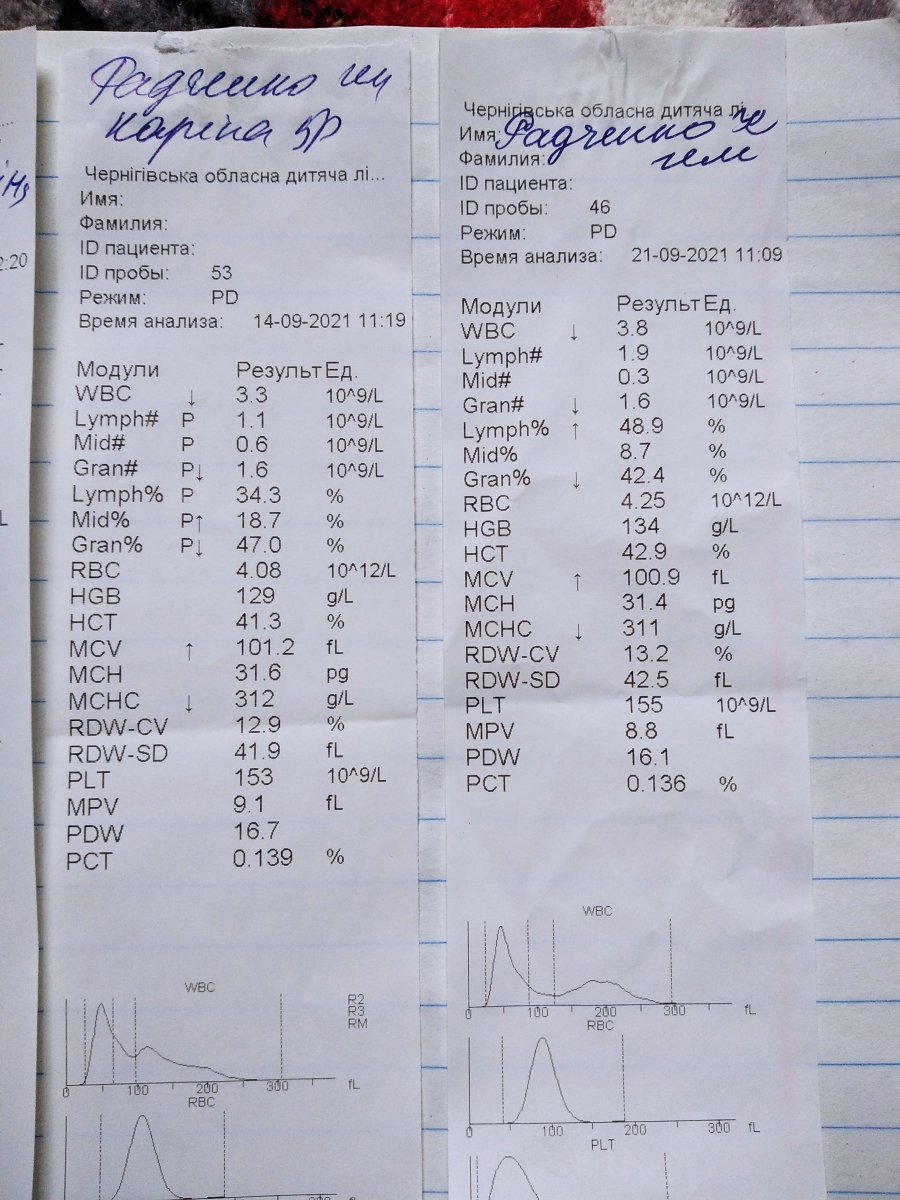 Радченко гем
Каріна 5р
Чернігівська обласна дитяча лі...
Имя:
Фамилия:
ID пациента:
ID пробы: 53
Режим: PD
Время анализа: 14-09-2021 11:19
Модули Результ Ед.
WBC ↓ 3.3 10^9/L
Lymph# P 1.1 10^9/L
Mid# P 0.6 10^9/L
Gran# P↓ 1.6 10^9/L
Lymph% P 34.3 %
Mid% P↑ 18.7 %
Gran% P↓ 47.0 %
RBC 4.08 10^12/L
HGB 129 g/L
HCT 41.3 %
MCV ↑ 101.2 fL
MCH 31.6 pg
MCHC ↓ 312 g/L
RDW-CV 12.9 %
RDW-SD 41.9 fL
PLT 153 10^9/L
MPV 9.1 fL
PDW 16.7
PCT 0.139 %
WBC
R2
R3
RM
0 100 200 300 fL
RBC
Чернігівська обласна дитяча лі...
Имя: Радченко К
Фамилия: гем
ID пациента:
ID пробы: 46
Режим: PD
Время анализа: 21-09-2021 11:09
Модули Результ Ед.
WBC ↓ 3.8 10^9/L
Lymph# 1.9 10^9/L
Mid# 0.3 10^9/L
Gran# ↓ 1.6 10^9/L
Lymph% ↑ 48.9 %
Mid% 8.7 %
Gran% ↓ 42.4 %
RBC 4.25 10^12/L
HGB 134 g/L
HCT 42.9 %
MCV ↑ 100.9 fL
MCH 31.4 pg
MCHC ↓ 311 g/L
RDW-CV 13.2 %
RDW-SD 42.5 fL
PLT 155 10^9/L
MPV 8.8 fL
PDW 16.1
PCT 0.136 %
WBC
0 100 200 300 fL
RBC
0 100 200 300 fL
PLT